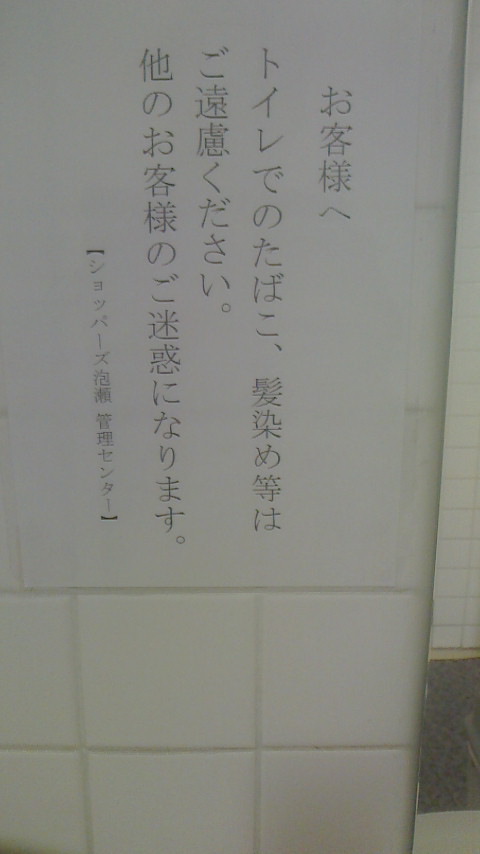 お客様へ
トイレでのたばこ、髪染め等は
ご遠慮ください。
他のお客様のご迷惑になります。
【ショッパーズ泡瀬 管理センター】